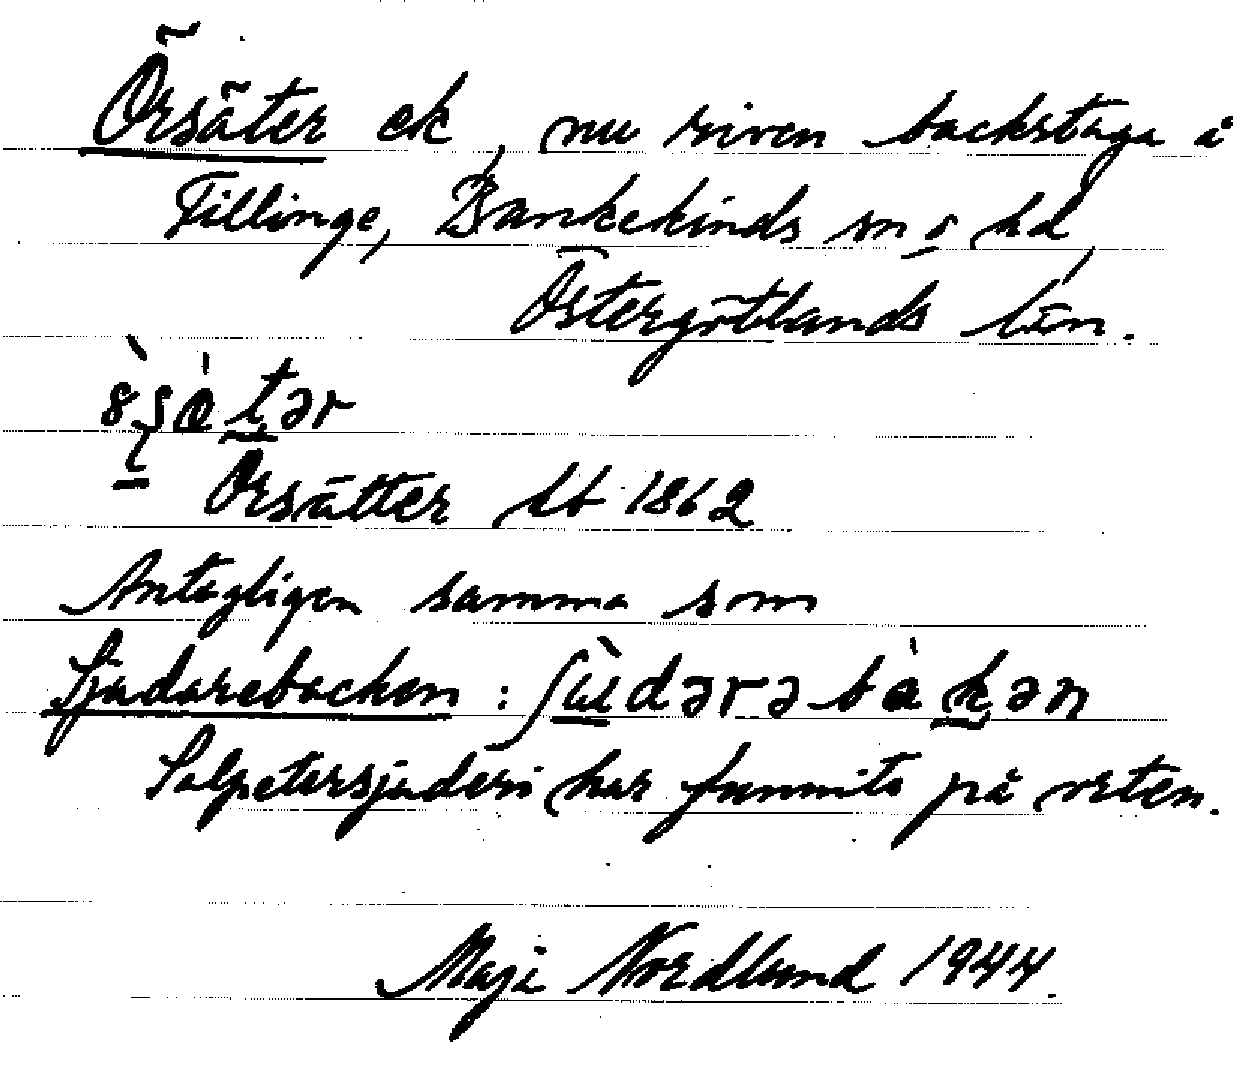 Örsäter ek, nu riven backstuga å
Fillinge, Bankekinds sn o hd,
Östergötlands län.
Orsätter lb 1862
Antagligen samma som
Sjudarebacken : ʃɯ̀dərəbàkən
Salpetersjuderi har funnits på orten.
Maja Nordlund 1944.